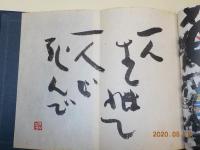 一人
生れて
一人で
死んで
2020.05.1